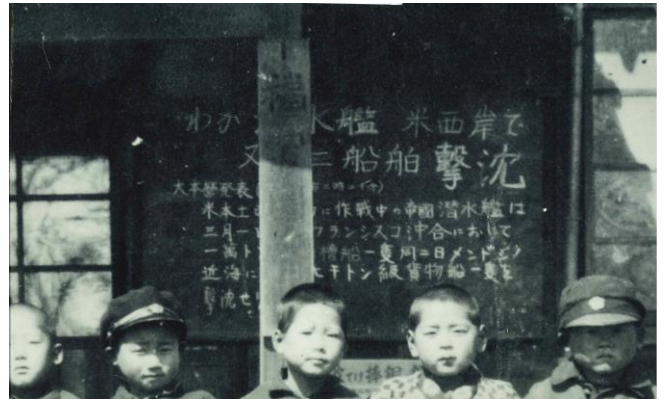 わが 水艦 米西岸で
又 船舶擊沈
大本営発表
米本土 に作戦中の帝國潜水艦は
三月一 フランシスコ沖合において
一萬ト 槽船一隻同二日メンドシノ
近海に 七千トン級貨物船一隻を
撃沈せ